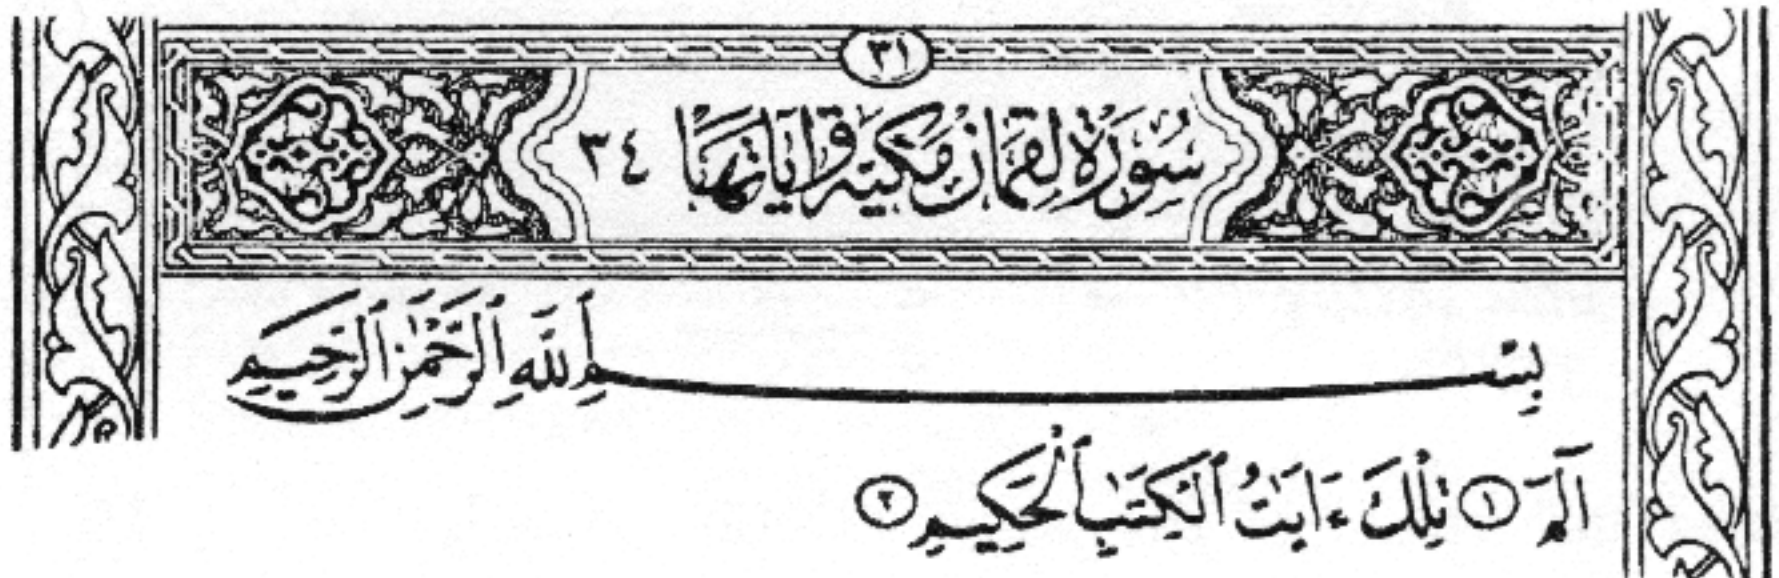 ٣١
سُورَةُ لقمَان مَكيّة وَآيَاتهَا ٣٤
بِسْمِ ٱللَّهِ ٱلرَّحْمَٰنِ ٱلرَّحِيمِ
الٓمٓ ١ تِلْكَ ءَايَٰتُ ٱلْكِتَٰبِ ٱلْحَكِيمِ ٢